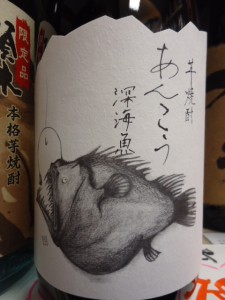 芋焼酎
あんこう
深海魚
限定品
本格芋焼酎